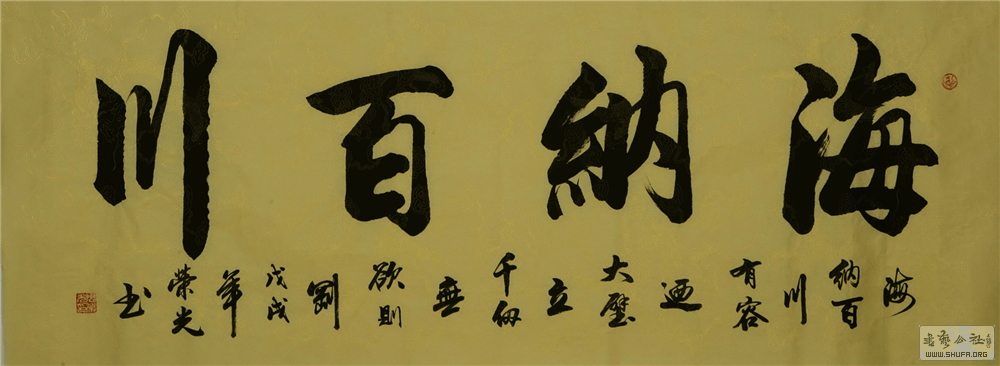 海納百川
海納百川有容迺大壁立千仞無欲則剛戊戌年榮光书
书藝公社
WWW.SHUFA.ORG